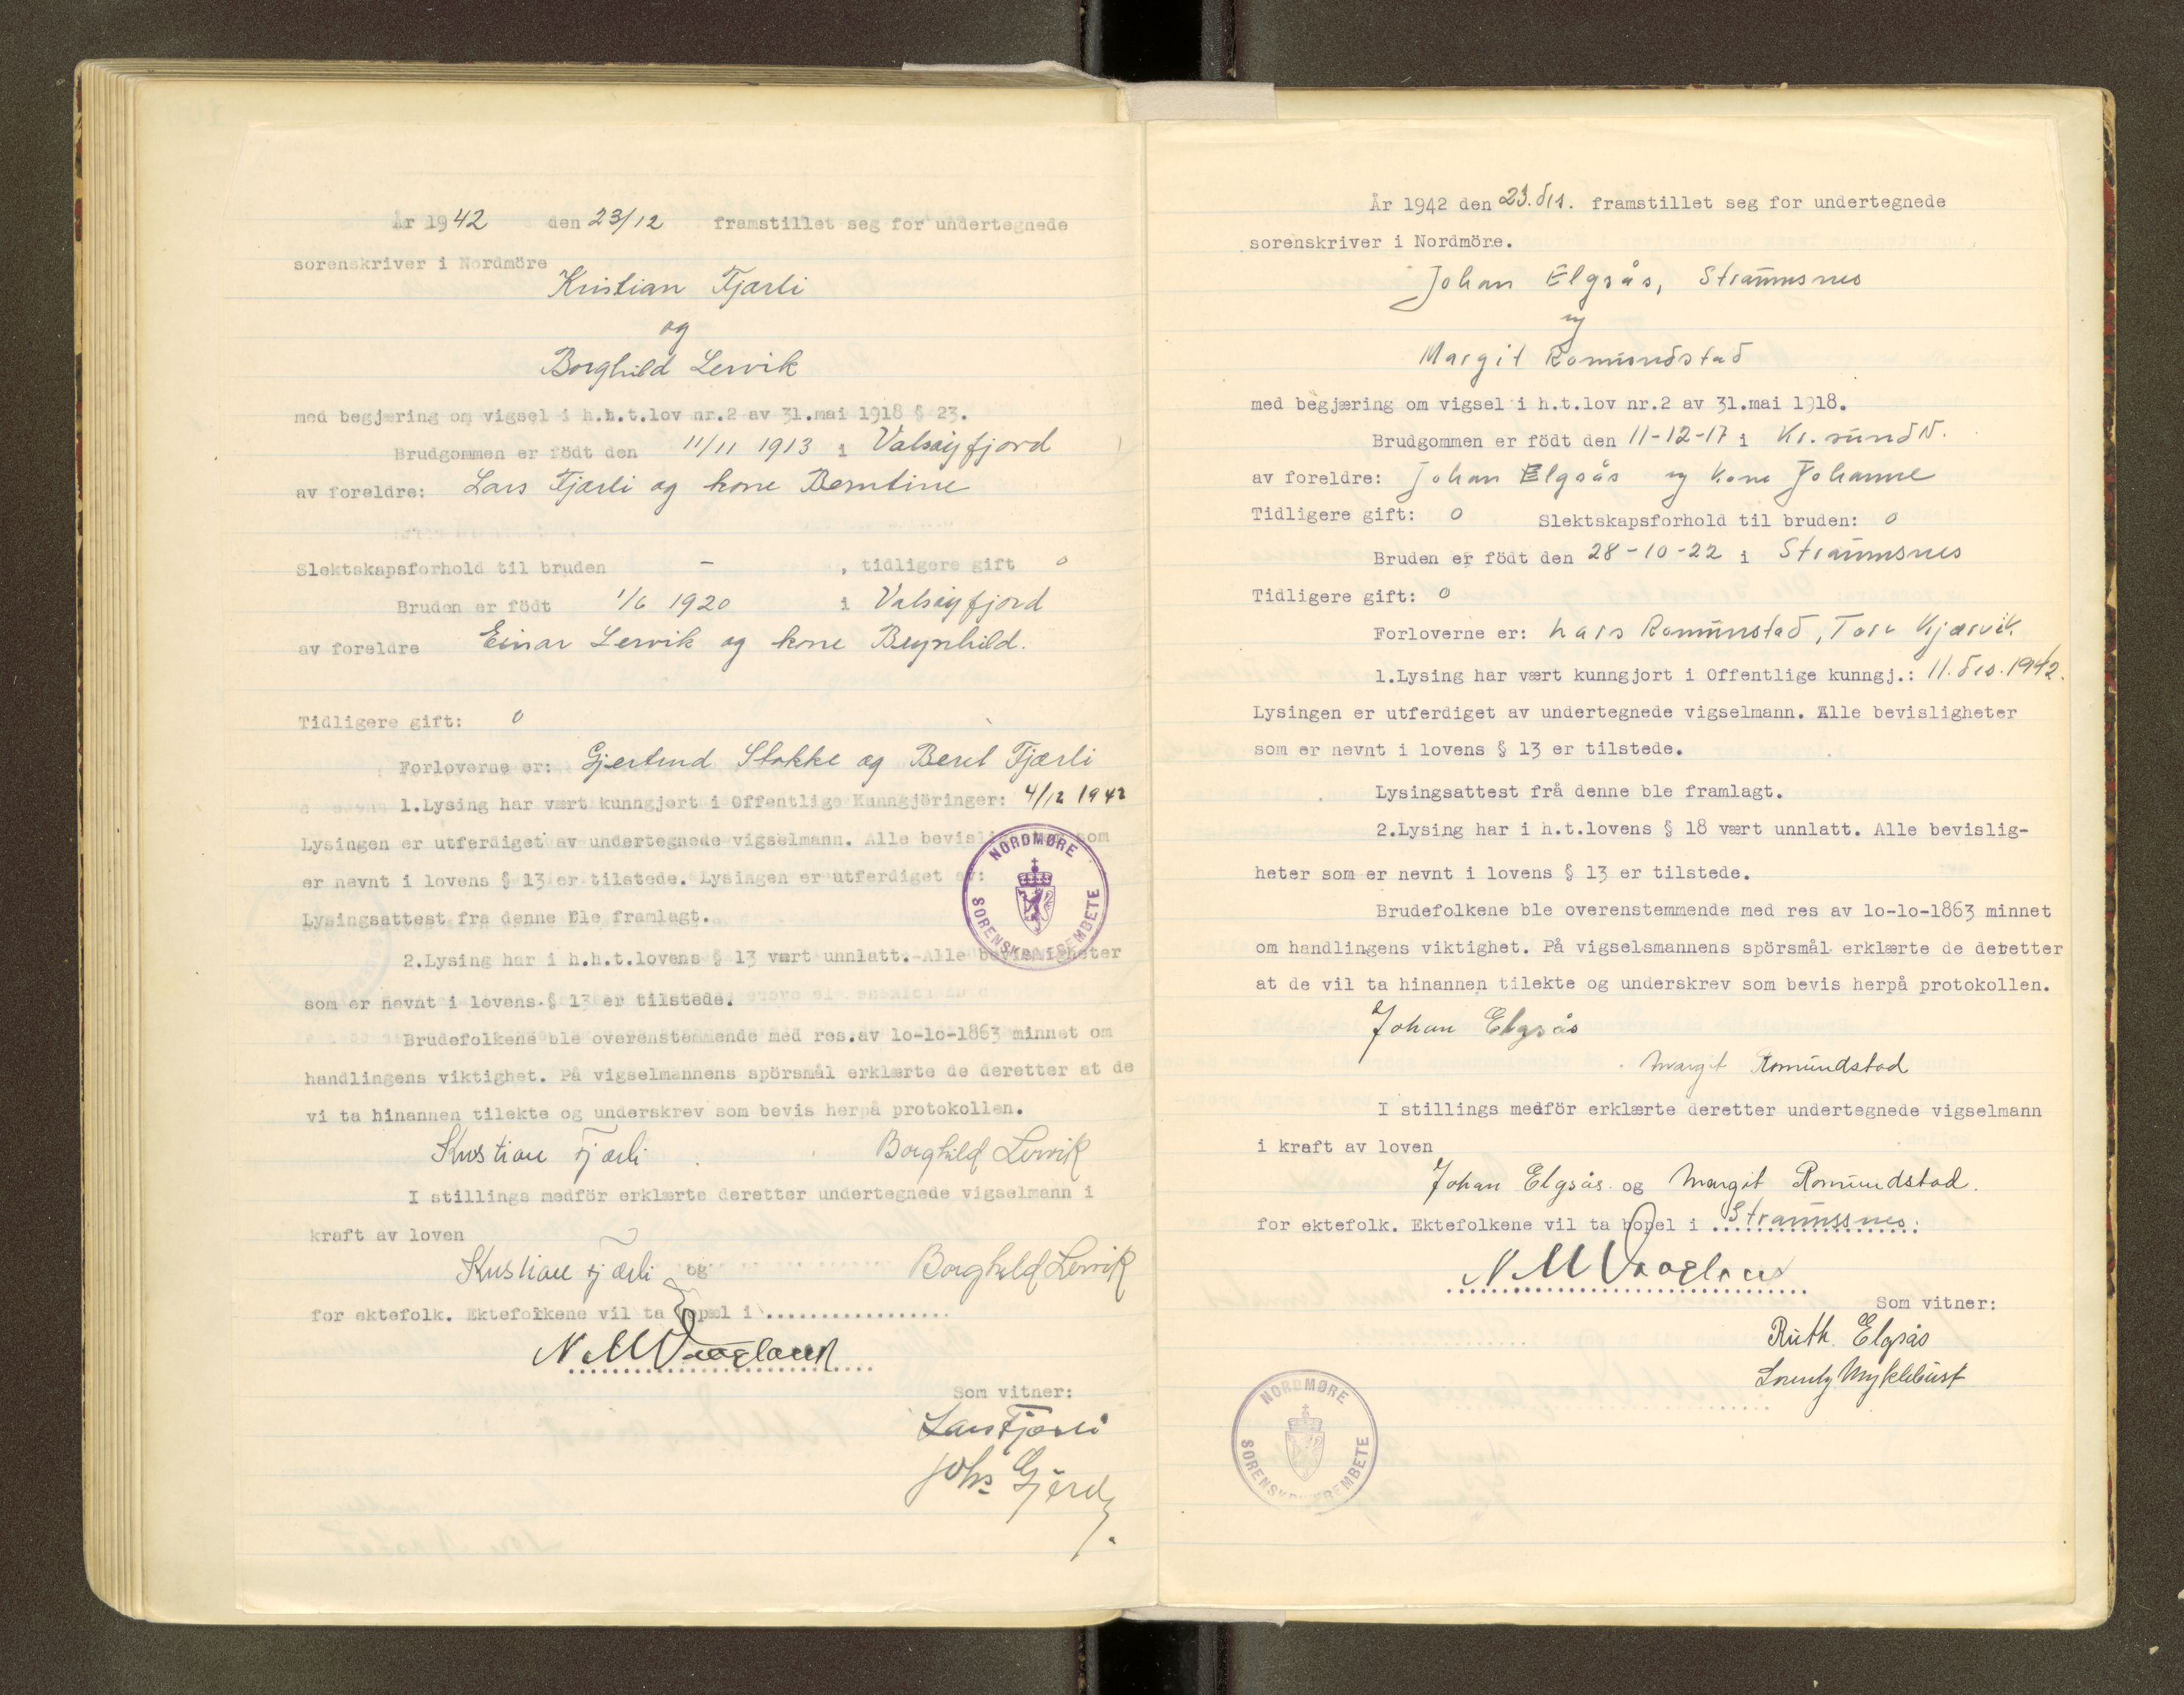 År 1942 den 23/12 framstillet seg for undertegnede
sorenskriver i Nordmöre
Kristian Fjærli
og
Borghild Lervik
med begjæring om vigsel i h.h.t.lov nr.2 av 31.mai 1918 § 23.
Brudgommen er födt den 11/11 1913 i Valsøyfjord
av foreldre: Lars Fjærli og kone Berntine
Slektskapsforhold til bruden - , tidligere gift 0
Bruden er födt 1/6 1920 i Valsøyfjord
av foreldre Einar Lervik og kone Brynhild.
Tidligere gift: 0
Forloverne er: Gjertrud Stokke og Beret Fjærli
1.Lysing har vært kunngjort i Offentlige Kunngjöringer: 4/12 1942
Lysingen er utferdiget av undertegnede vigselmann. Alle som
er nevnt i lovens § 13 er tilstede. Lysingen er utferdiget av:
Lysingsattest fra denne ble framlagt.
2.Lysing har i h.h.t.lovens § 13 vært unnlatt.-Alle bevisligheter
som er nevnt i lovens § 13 er tilstede.
Brudefolkene ble overenstemmende med res.av lo-lo-1863 minnet om
handlingens viktighet. På vigselmannens spörsmål erklærte de deretter at de
vi ta hinannen tilekte og underskrev som bevis herpå protokollen.
Kristian Fjærli Borghild Lervik
I stillings medför erklærte deretter undertegnede vigselmann i
kraft av loven
Kristian Fjærli og Borghild Lervik
for ektefolk. Ektefolkene vil ta bopæl i ..................
Som vitner:
Lars Fjærli
Johs Gjerd
NORDMØRE
SORENSKRIVEREMBETE
År 1942 den 23. des. framstillet seg for undertegnede
sorenskriver i Nordmöre.
Johan Elgsås, Straumsnes
og
Margit Romundstad
med begjæring om vigsel i h.t.lov nr.2 av 31.mai 1918.
Brudgommen er födt den 11-12-17 i Kr.sund N.
av foreldre: Johan Elgsås og kone Johanne
Tidligere gift: 0 Slektskapsforhold til bruden: 0
Bruden er födt den 28-10-22 i Straumsnes
Tidligere gift: 0
Forloverne er: Lars Romunstad, Tore Kjørsvik.
1.Lysing har vært kunngjort i Offentlige kunngj.: 11. des. 1942.
Lysingen er utferdiget av undertegnede vigselmann. Alle bevisligheter
som er nevnt i lovens § 13 er tilstede.
Lysingsattest frå denne ble framlagt.
2.Lysing har i h.t.lovens § 18 vært unnlatt. Alle bevislig-
heter som er nevnt i lovens § 13 er tilstede.
Brudefolkene ble overenstemmende med res av lo-lo-1863 minnet
om handlingens viktighet. På vigselsmannens spörsmål erklærte de deretter
at de vil ta hinannen tilekte og underskrev som bevis herpå protokollen.
Johan Elgsås
Margit Romundstad
I stillings medför erklærte deretter undertegnede vigselmann
i kraft av loven
Johan Elgsås og Margit Romundstad.
for ektefolk. Ektefolkene vil ta bopel i Straumssnes.
Som vitner:
Ruth Elgsås
Lorentz Myklebust
NORDMØRE
SORENSKRIVEREMBETE